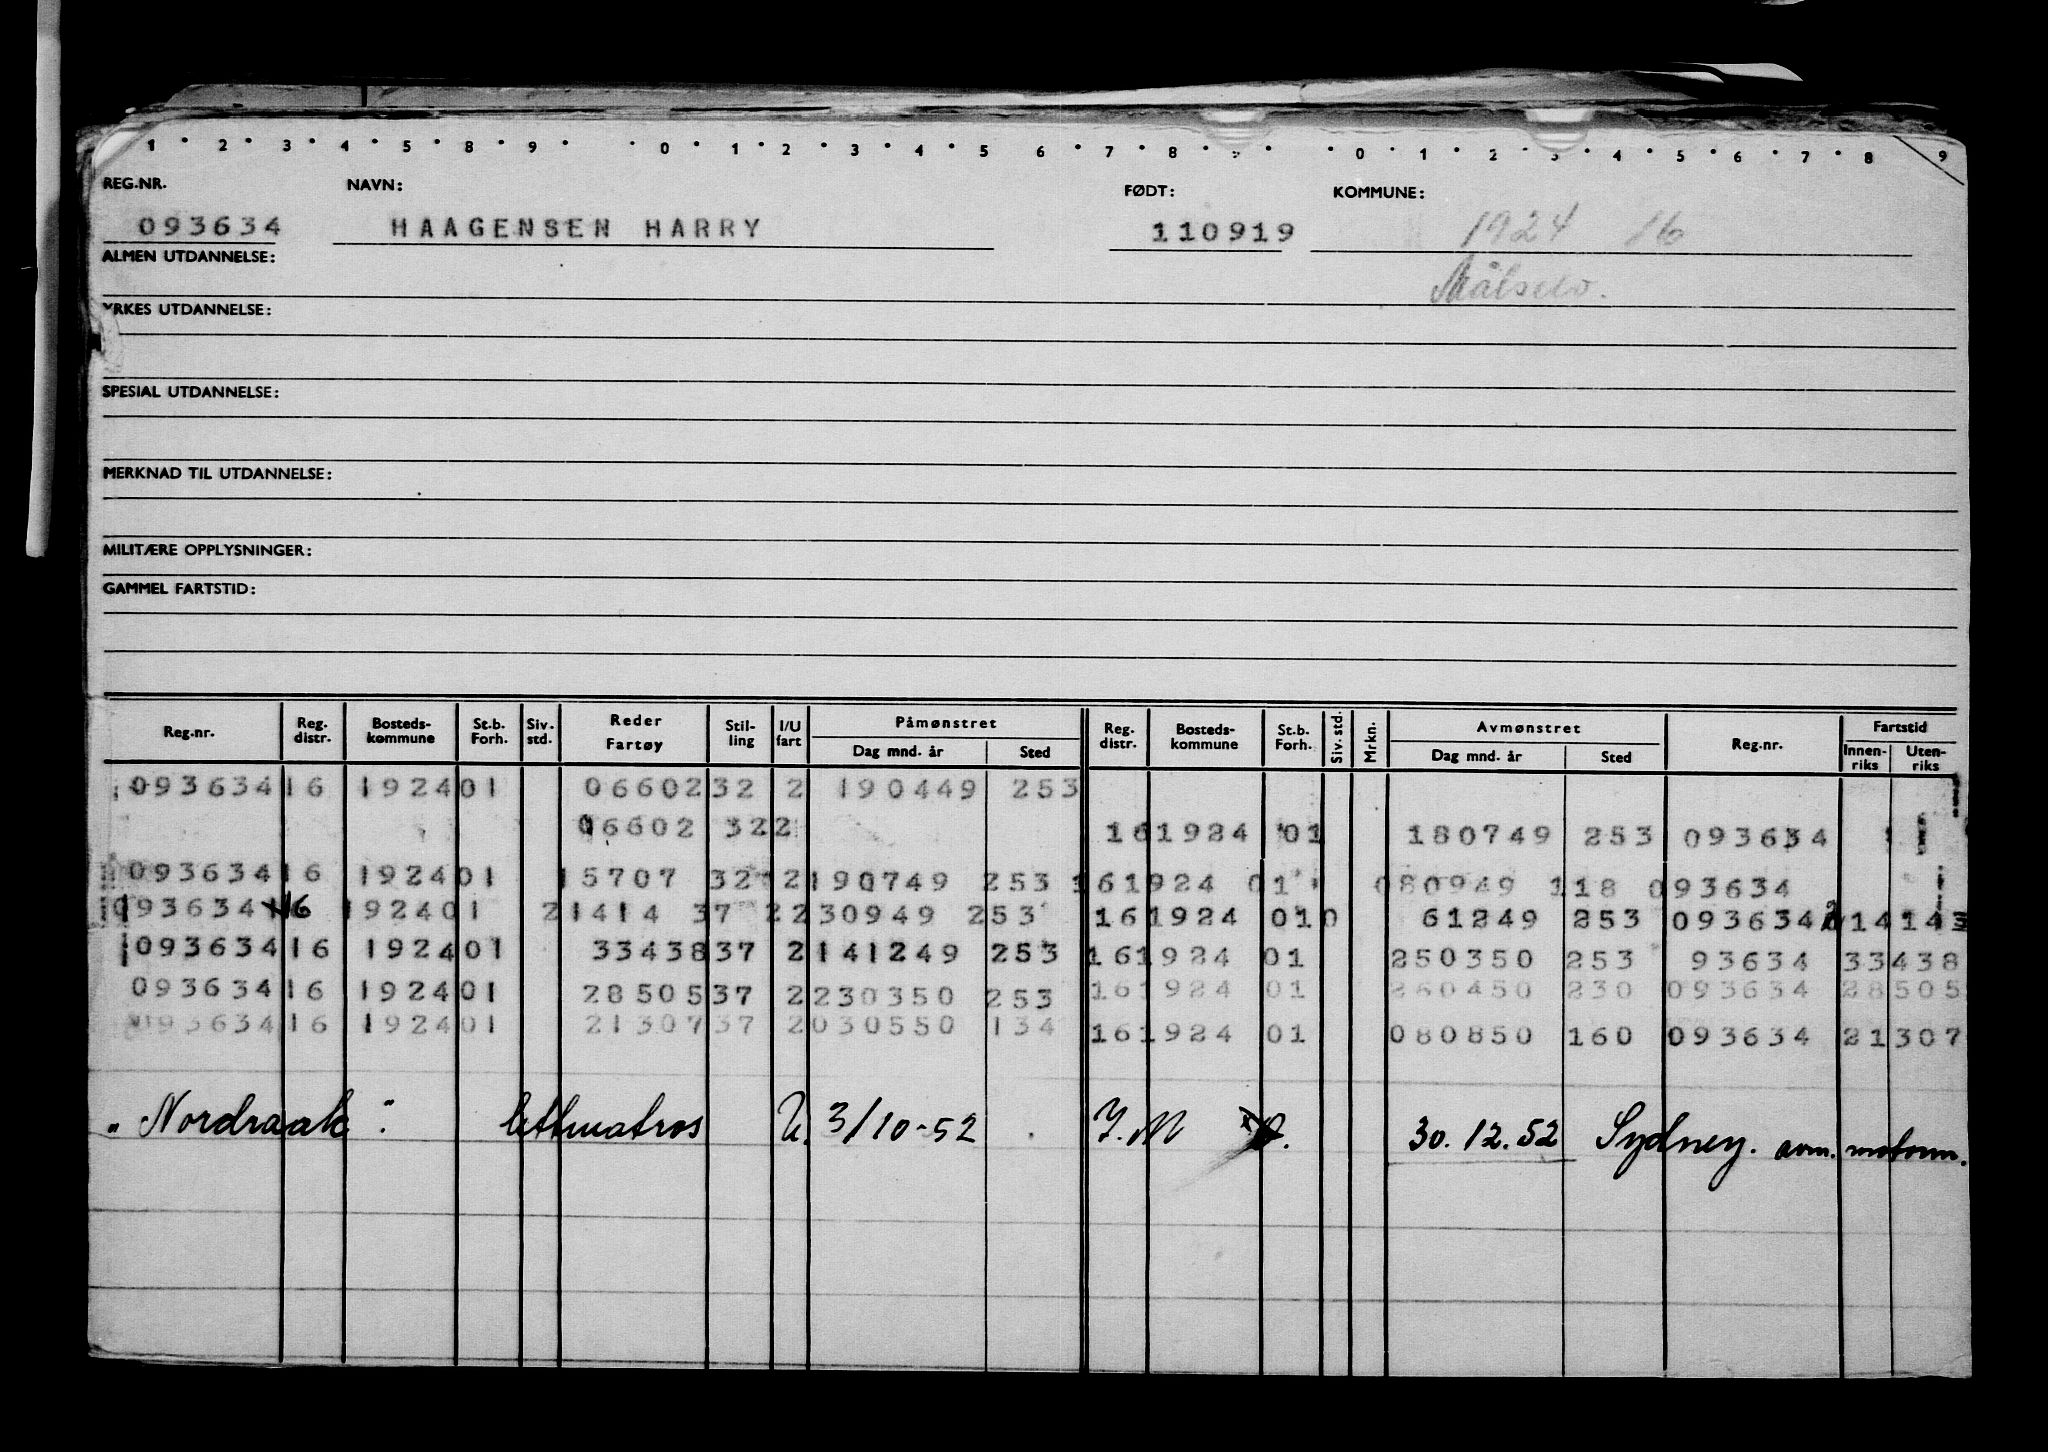 1 2 3 4 5 8 9 0 1 2 3 4 5 6 7 8 9 0 1 2 3 4 5 6 7 8 9
REG.NR. NAVN: FØDT: KOMMUNE:
093634 HAAGENSEN HARRY 110919 1924 16
ALMEN UTDANNELSE: Målselv.
YRKES UTDANNELSE:
SPESIAL UTDANNELSE:
MERKNAD TIL UTDANNELSE:
MILITÆRE OPPLYSNINGER:
GAMMEL FARTSTID:
Reg.nr. Reg. distr. Bosteds-kommune St.b. Forh. Siv. std. Reder Fartøy Stil-ling I/U fart Påmønstret Dag mnd. år Sted Reg. distr. Bosteds-kommune St.b. Forh. Siv. std. Mrkn. Avmønstret Dag mnd. år Sted Reg.nr. Fartstid Innen-riks Uten-riks
093634 16 1924 01 06602 32 2 190449 253
06602 32 2 16 1924 01 180749 253 093634
093634 16 1924 01 15707 32 2 190749 253 16 1924 01 080949 118 093634
093634 16 1924 01 21414 37 2 230949 253 16 1924 010 61249 253 093634
093634 16 1924 01 33438 37 2 141249 253 16 1924 01 250350 253 93634 33438
093634 16 1924 01 28505 37 2 230350 253 16 1924 01 260450 230 093634 28505
093634 16 1924 01 21307 37 2 030550 134 16 1924 01 080850 160 093634 21307
"Nordraak". lettmatros U. 3/10-52 30.12.52 Sydney. avm. motorm.